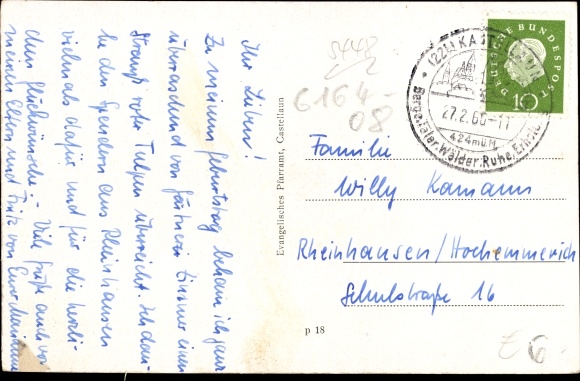 Ihr Lieben!
Zu meinem Geburtstag bekam ich ganz
überraschend von Gärtnerei einen
Strauß roter Tulpen überreicht. Ich dan-
ke den Spendern aus Rheinhausen
vielmals dafür und für die herzli-
chen Glückwünsche. Viele Grüße auch von
meinen Eltern und Fritz von Eurer
Evangelisches Pfarramt, Castellaun
p 18
5448
6164-
08
(22b) KASTELLAUN
27.2.60-11
424müM
Berge, Täler, Wälder, Ruhe, Erholg.
DEUTSCHE BUNDESPOST
10
Familie
Willy Kamann
Rheinhausen/Hochemmerich
Schulstraße 16
6.-